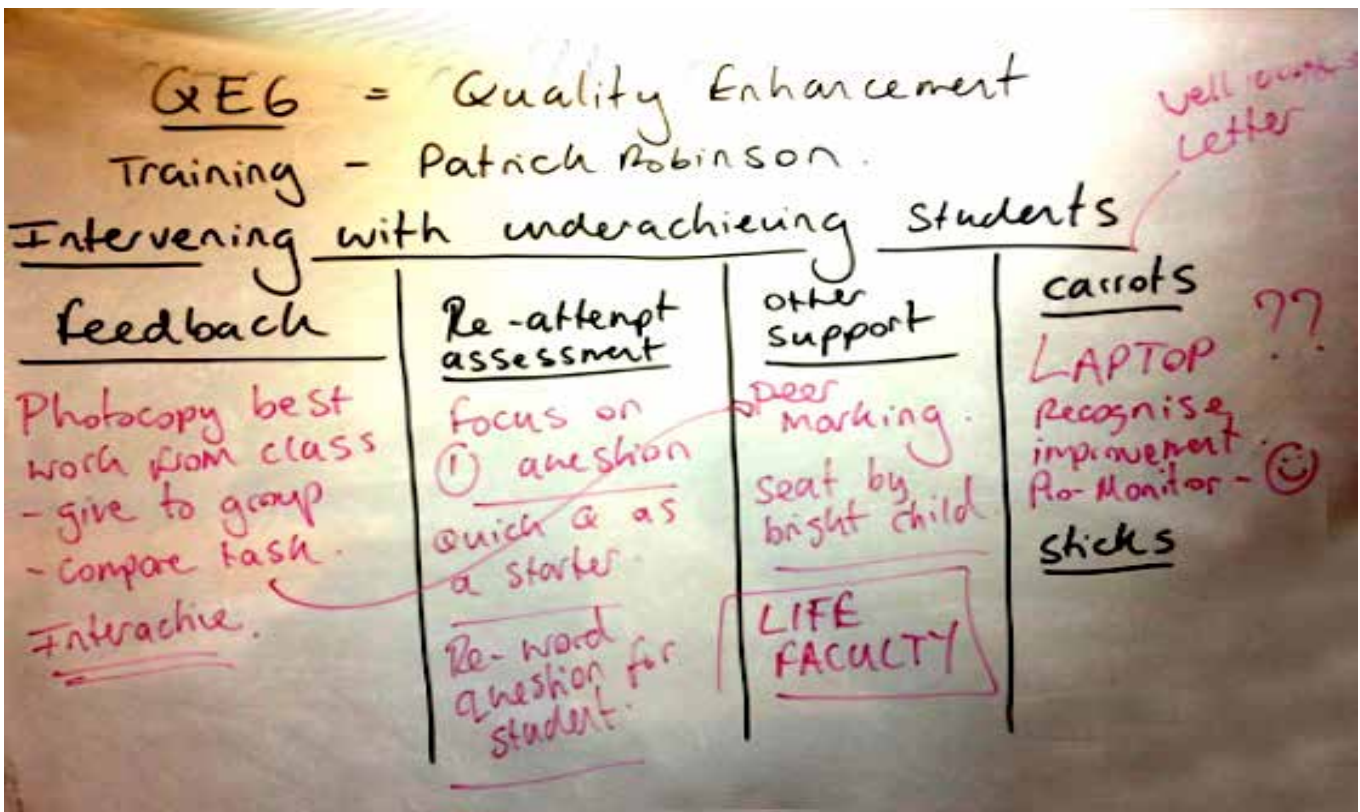 QE6 = Quality Enhancement
Training - Patrick Robinson.
Well
Letter
Intervening with underachieving students
feedback
Photocopy best
work from class
- give to group
- compare task.
Interactive.
Re-attempt
assessment
focus on
① question
Quick Q as
a starter.
Re-word
question for
student.
other
support
peer
marking.
seat by
bright child
LIFE
FACULTY
carrots
LAPTOP ??
Recognise
improvement.
Pro-Monitor - ☺
sticks